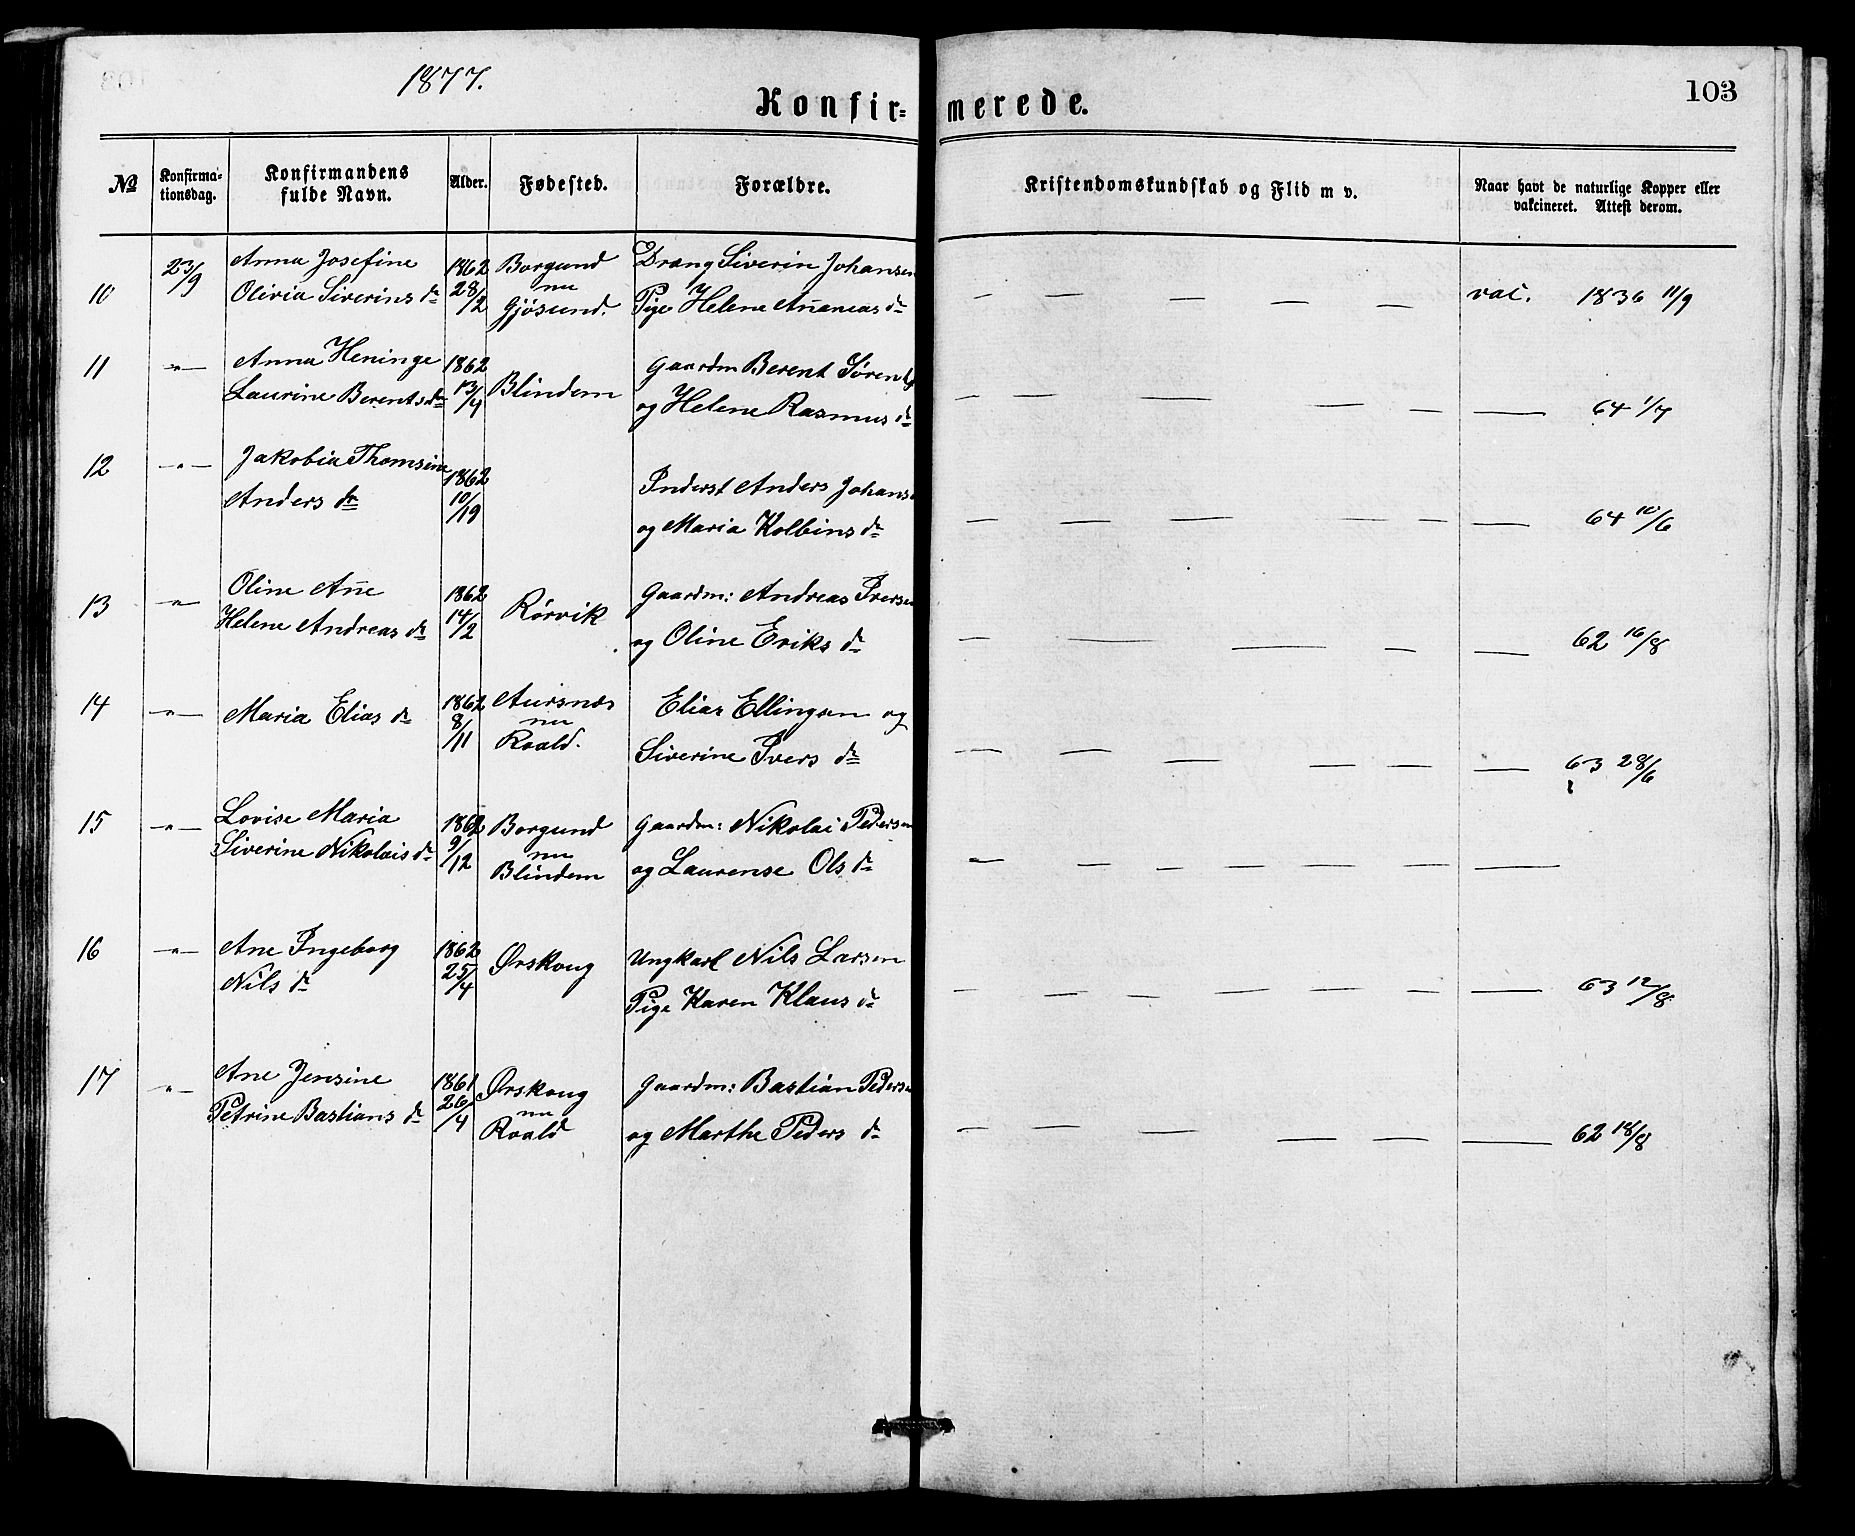 1877.
Konfir=merede.
103
No
Konfirma-
tionsdag.
Konfirmandens
fulde Navn.
Alder.
Fødested.
Forældre.
Kristendomskundskab og Flid m v.
Naar havt de naturlige Kopper eller
vakcineret. Attest derom.
10 23/9 Anna Josefine 1862 Borgund Dreng Siverin Johansen
Olivia Siverins dr 28/2 nu Gjösund. Pige Helene Añaneas dr — — — — — vac. 1836 11/9
11 -"- Anna Heninge 1862 Blindem Gaardm Berent Sørens
Laurine Berents dr 13/4 og Helene Rasmus dr — — — — — — 64 1/7
12 -"- Jakobia Thomsine 1862
Anders dr 10/19 Inderst Anders Johans
og Maria Kolbins dr — — — — — — 64 10/6
13 -"- Oline Añe 1862 Rörvik Gaardm: Andreas Iversen
Helene Andreas dr 14/2 og Oline Eriks dr — — — — — 62 16/8
14 -"- Maria Elias dr 1862 Aursnes Elias Ellingsen og
8/11 nu Roald. Siverine Ivers dr — — — — — — 63 28/6
15 -"- Lovise Maria 1862 Borgund Gaardm: Nikolai Pedersen
Siverine Nikolais dr 9/12 nu Blindem og Laurense Ols dr — — — — — — —
16 -"- Ane Ingeborg 1862 Ørskoug Ungkarl Nils Larsen
Nils dr 25/4 Pige Karen Klaus dr — — — — — — — 63 12/8
17 -"- Ane Jensine 1861 Ørskoug Gaardm: Bastian Pedersen
Petrine Bastians dr 26/4 nu Roald og Marthe Peders dr — — — — — — 62 18/8